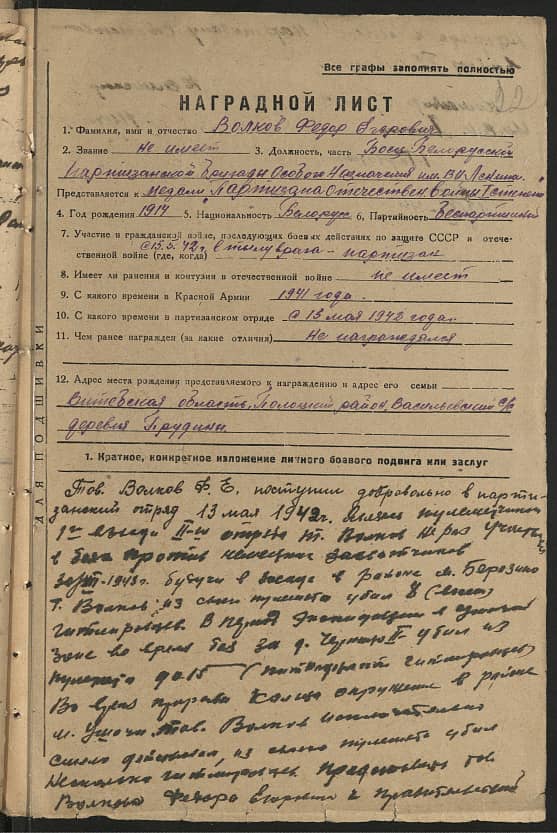 Все графы заполнять полностью
22
НАГРАДНОЙ ЛИСТ
1. Фамилия, имя и отчество Волков Федор Егорович
2. Звание не имеет 3. Должность, часть Боец Белорусской
партизанской бригады Особого Назначения им. В.И. Ленина
Представляется к медали "Партизана Отечествен. войны I степени"
4. Год рождения 1914 5. Национальность Белорус 6. Партийность Беспартийный
7. Участие в гражданской войне, последующих боевых действиях по защите СССР и отече-
ственной войне (где, когда) с 15.5.42 г. в тылу врага - партизан
8. Имеет ли ранения и контузии в отечественной войне не имеет
9. С какого времени в Красной Армии 1941 года.
10. С какого времени в партизанском отряде с 13 мая 1942 года.
11. Чем ранее награжден (за какие отличия) Не награждался
12. Адрес места рождения представляемого к награждению и адрес его семьи
Витебская область, Полоцкий район, Васильевский с/с
деревня Прудини.
ДЛЯ ПОДШИВКИ
1. Краткое, конкретное изложение личного боевого подвига или заслуг
Тов. Волков Ф. Е. поступил добровольно в парти-
занский отряд 13 мая 1942 г. Являясь пулеметчиком
1го взвода II-го отряда т. Волков раз участв.
в боях против немецких захватчиков
1943 г. будучи в засаде в районе м. Березино
т. Волков из своего пулемета убил 8
гитлеровцев. В период экспедиции в
зоне во время боя за д. убил из
пулемета до 15 (пятнадцати гитлеровцев)
Во время прорыва кольца окружения в районе
м. Ушачи тов. Волков исключительно
смело действовал, из своего пулемета убил
несколько гитлеровцев. тов.
Волков Федора Егоровича к правительствен